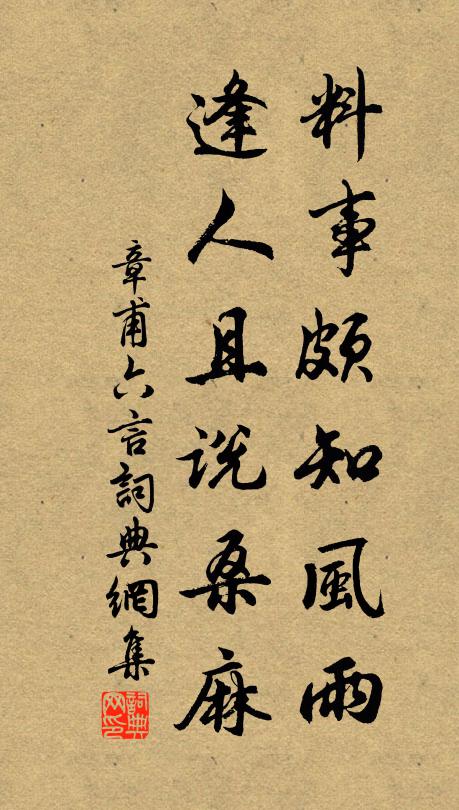 料事頗知風雨
逢人且説桑麻
章甫六言詞典網集
詞典網印